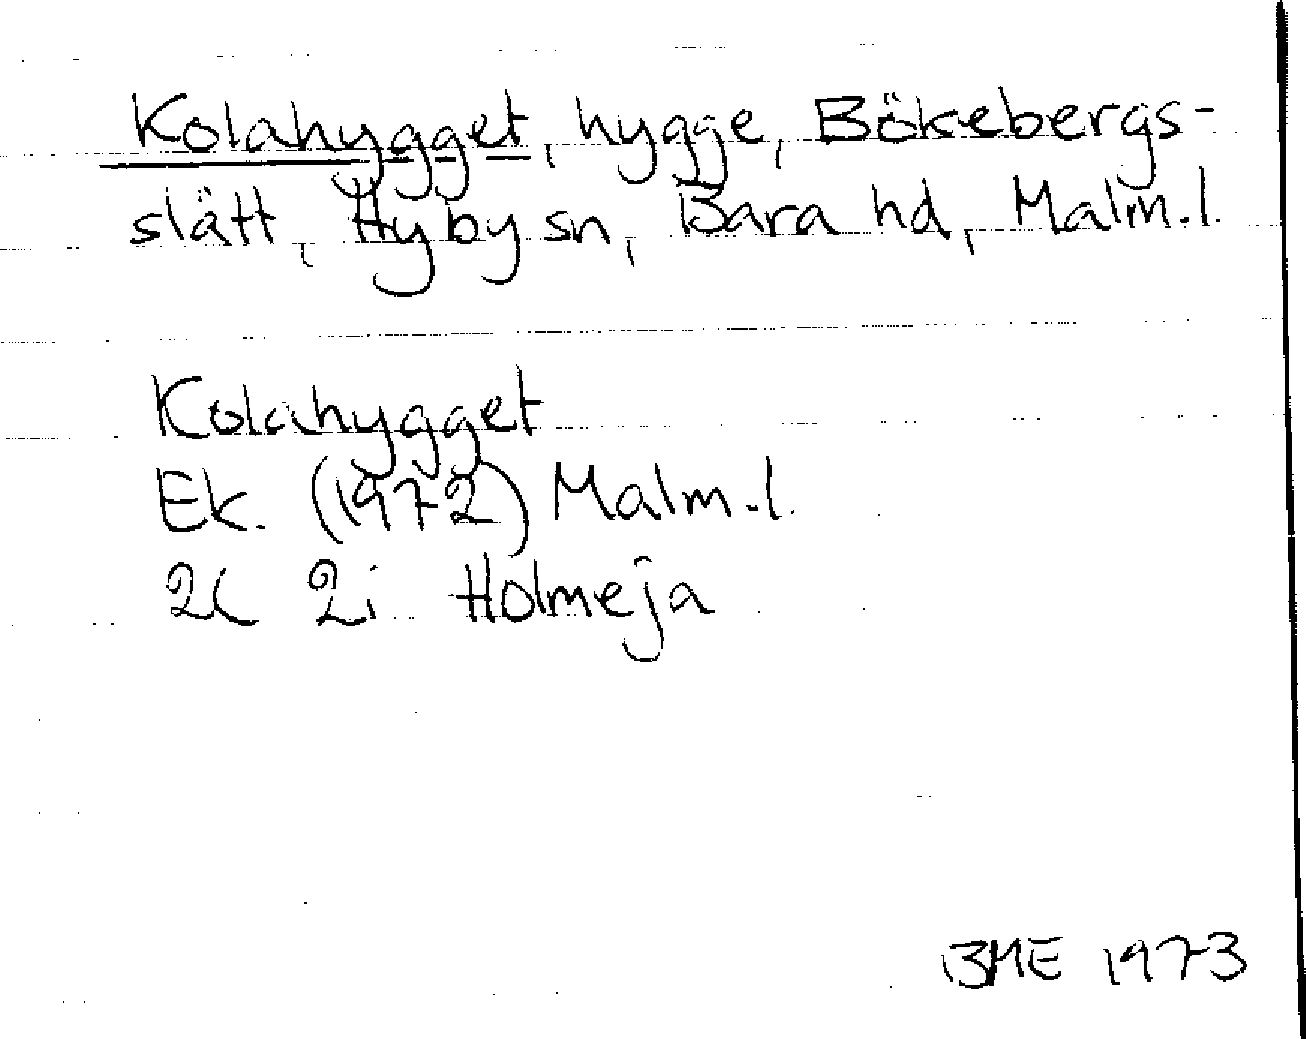 Kolahygget, hygge, Bökebergs-
slätt, Hyby sn, Bara hd, Malm.l.
Kolahygget
Ek. (1972) Malm.l.
2C 2i Holmeja
BME 1973